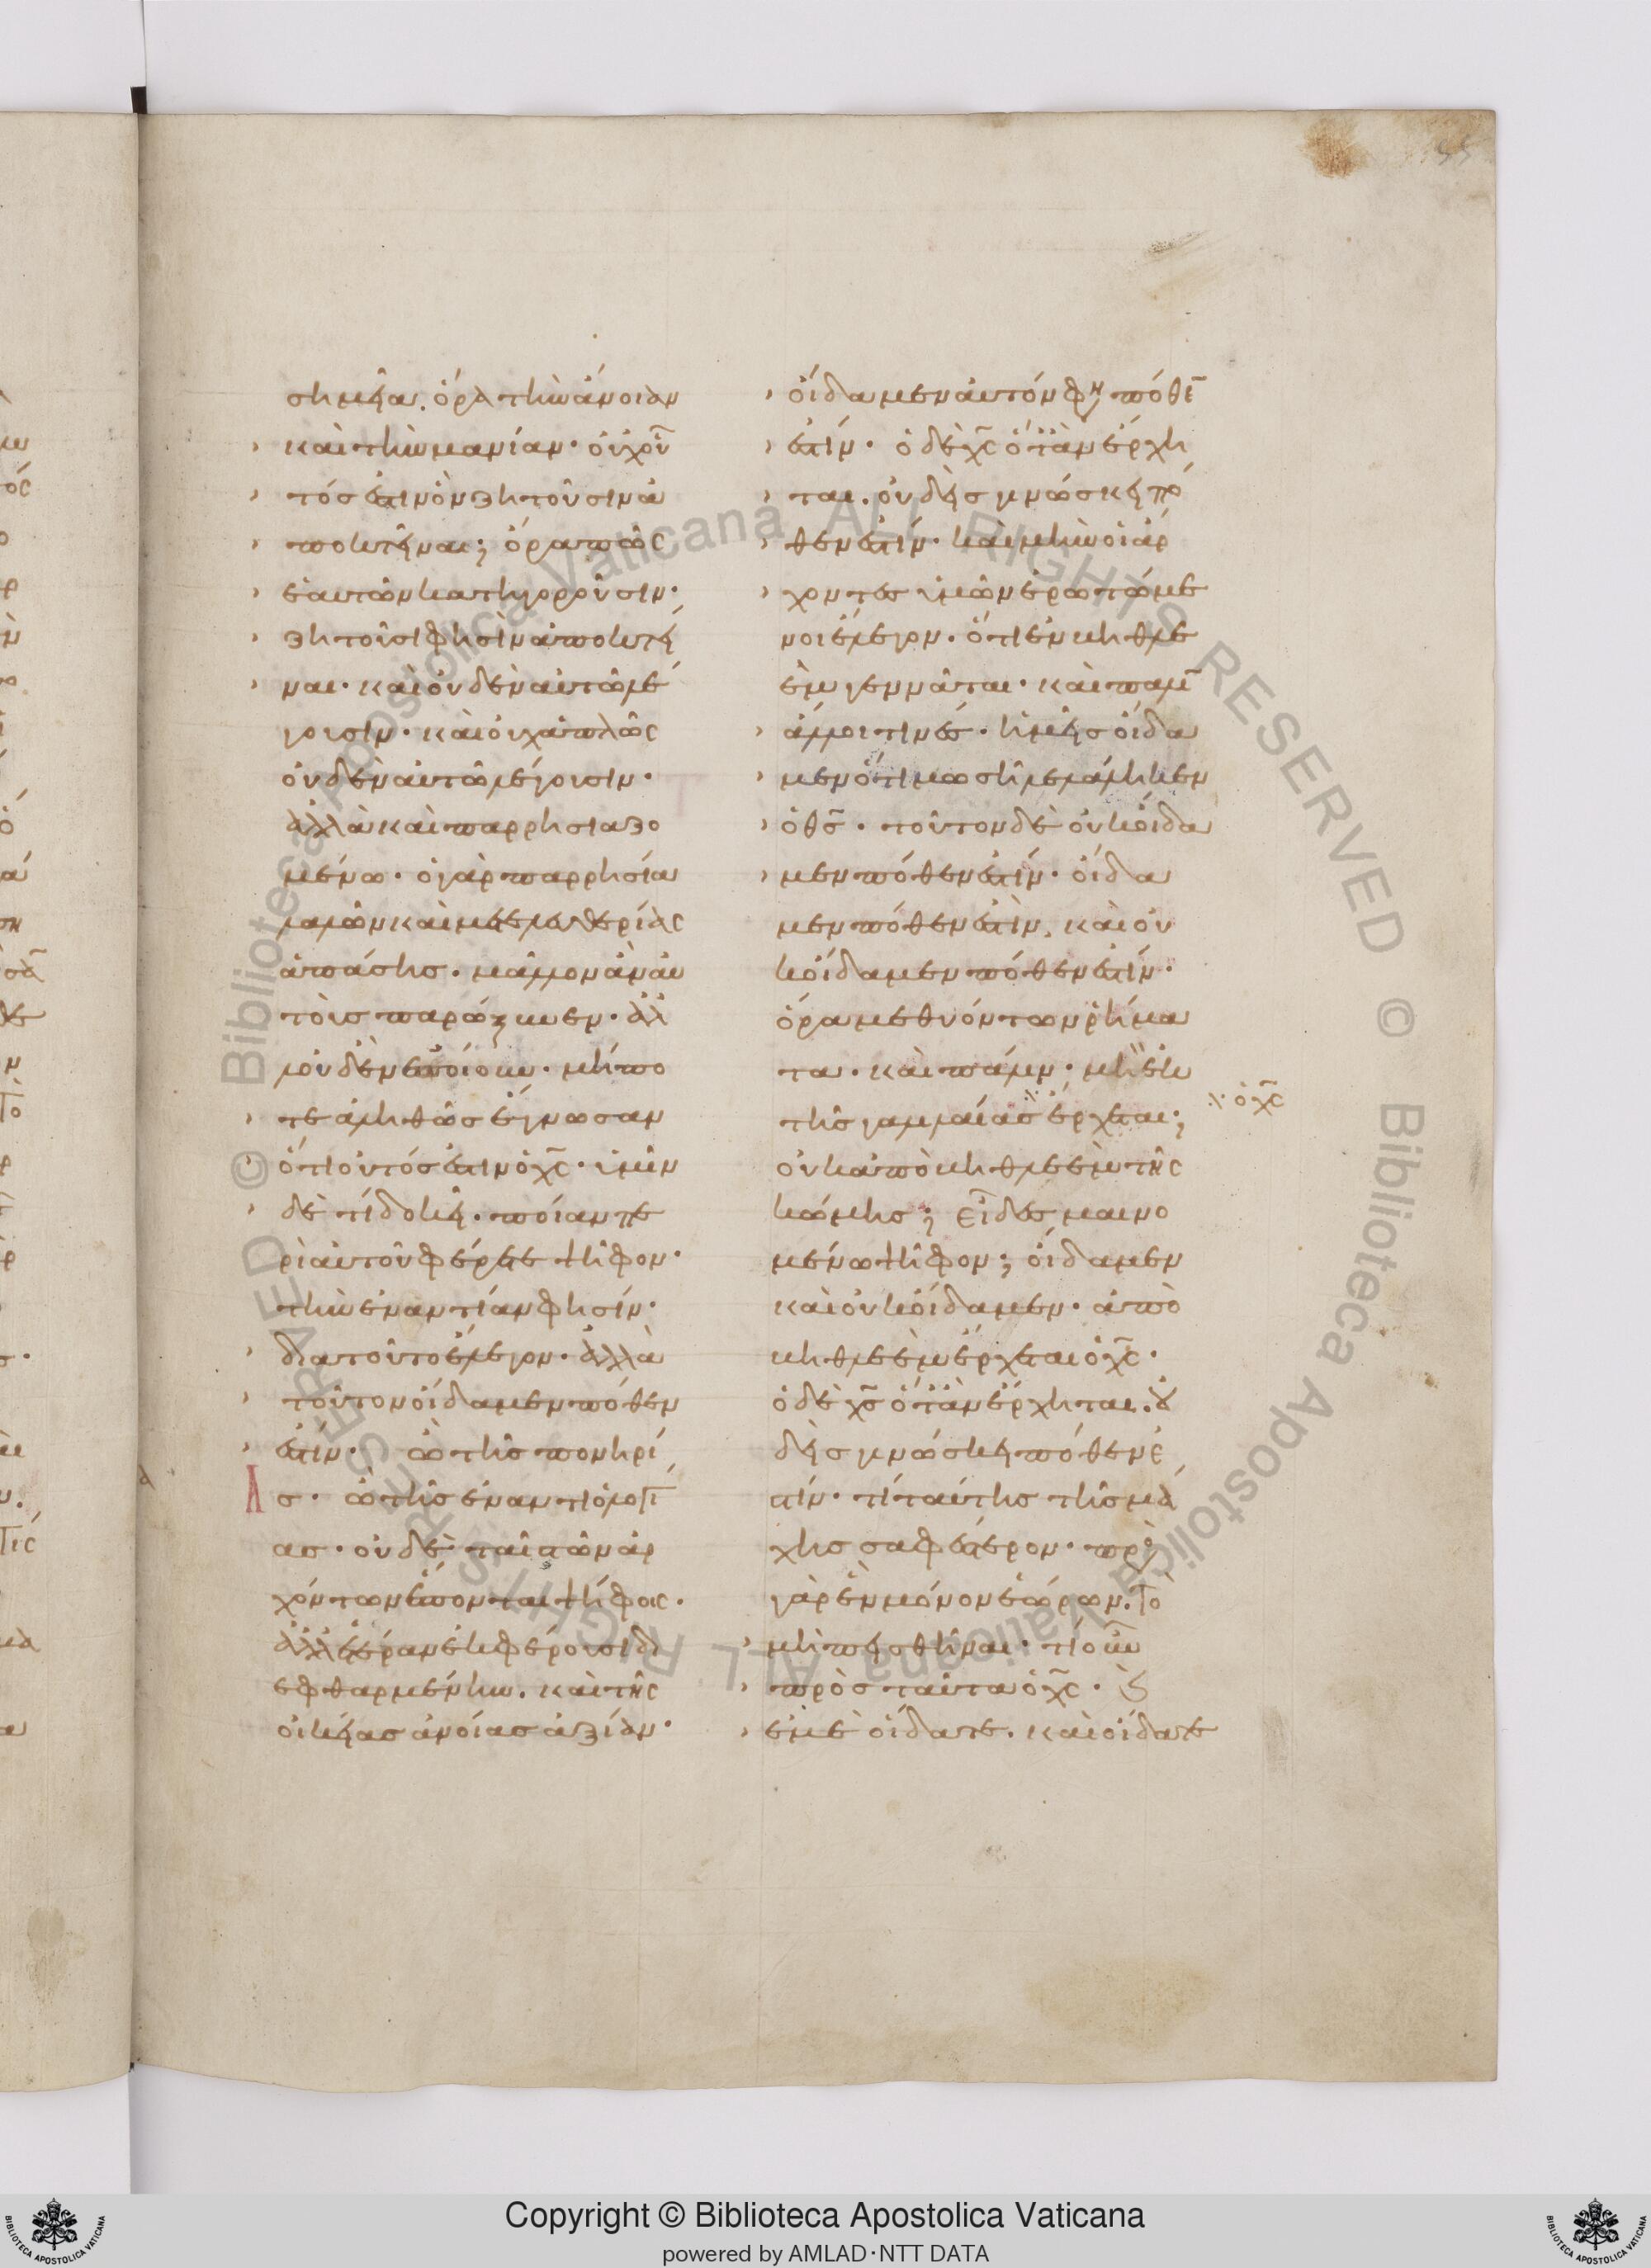 55
σημεῖα. ὅρα τὴν ἄνοιαν
καὶ τὴν μανίαν· οὐχ οὗ
τός ἐστιν ὃν ζητοῦσιν ἀ
ποκτεῖναι; ὅρα πῶς
ἑαυτῶν κατηγοροῦσιν·
ζητοῦσι φησὶν ἀποκτεῖ
ναι· καὶ οὐδὲν αὐτῶ λέ
γουσιν· καὶ οὐχ ἁπλῶς
οὐδὲν αὐτῶ λέγουσιν·
ἀλλὰ καὶ παρρησιαζο
μένω· ὁ γὰρ παρρησία
λαλῶν καὶ μετ ἐλευθερίας
ἁπάσης. μᾶλλον ἂν αὐ
τοὺς παρώξυνεν· ἀλ
λ οὐδὲν ἐποίουν· μήπο
τε ἀληθῶς ἔγνωσαν
ὅτι οὗτός ἐστιν ὁ χς· ὑμῖν
δὲ τί δοκεῖ· ποίαν πε
ρὶ αὐτοῦ φέρετε ψῆφον·
τὴν ἐναντίαν φησίν·
διατοῦτο ἔλεγον· ἀλλὰ
τοῦτον οἴδαμεν πόθεν
ἐστίν· ὢ τῆς πονηρί
ας· ὢ τῆς ἐναντιολογί
ας· οὐδὲ ταῖς τῶν ἀρ
χόντων ἕπονται ψήφοις·
ἀλλ ἑτέραν ἐκφέρουσι δι
εφθαρμένην. καὶ τῆς
οἰκείας ἀνοίας ἀξίαν·
οἴδαμεν αὐτόν φη πόθε
ἐστίν· ὁ δὲ χς ὅταν ἔρχη
ται. οὐδεὶς γινώσκει πό
θεν ἐστίν· καὶ μὴν οἱ ἄρ
χοντες ὑμῶν ἐρωτώμε
νοι ἔλεγον. ὅτι ἐν βηθλε
ὲμ γεννᾶται· καὶ πάλι
ἄλλοι τινές· ἡμεῖς οἴδα
μεν ὅτι μωσῆ λελάληκεν
ὁ θς· τοῦτον δὲ οὐκ οἴδα
μεν πόθεν ἐστίν· οἴδα
μεν πόθεν ἐστὶν. καὶ οὐ
κ οἴδαμεν πόθεν ἐστίν·
ὅρα μεθυόντων ῥήμα
τα· καὶ πάλιν· μὴ ἐκ
τῆς γαλιλαίας ἔρχεται; ὁ χς
οὐκ ἀπὸ βηθλεὲμ τῆς
κώμης; εἶδες μαινο
μένων ψῆφον; οἴδαμεν
καὶ οὐκ οἴδαμεν· ἀπὸ
βηθλεὲμ ἔρχεται ὁ χς·
ὁ δὲ χς ὅταν ἔρχηται. οὐ
δεὶς γινώσκει πόθεν ἐ
στίν· τί ταύτης τῆς μά
χης σαφέστερον· πρὸς
γὰρ ἓν μόνον ἑώρων. τὸ
μὴ πεισθῆναι· τί οὖν
πρὸς ταῦτα ὁ χς· καὶ
ἐμὲ οἴδατε. καὶ οἴδατε
Copyright © Biblioteca Apostolica Vaticana
powered by AMLAD·NTT DATA